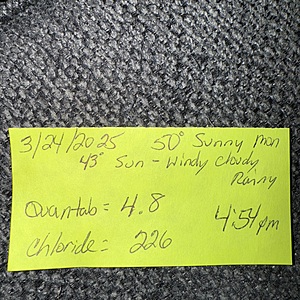 3/24/2025 50° Sunny mon
43° Sun - Windy cloudy
Rainy
Quantab = 4.8
4:54 pm
Chloride = 226